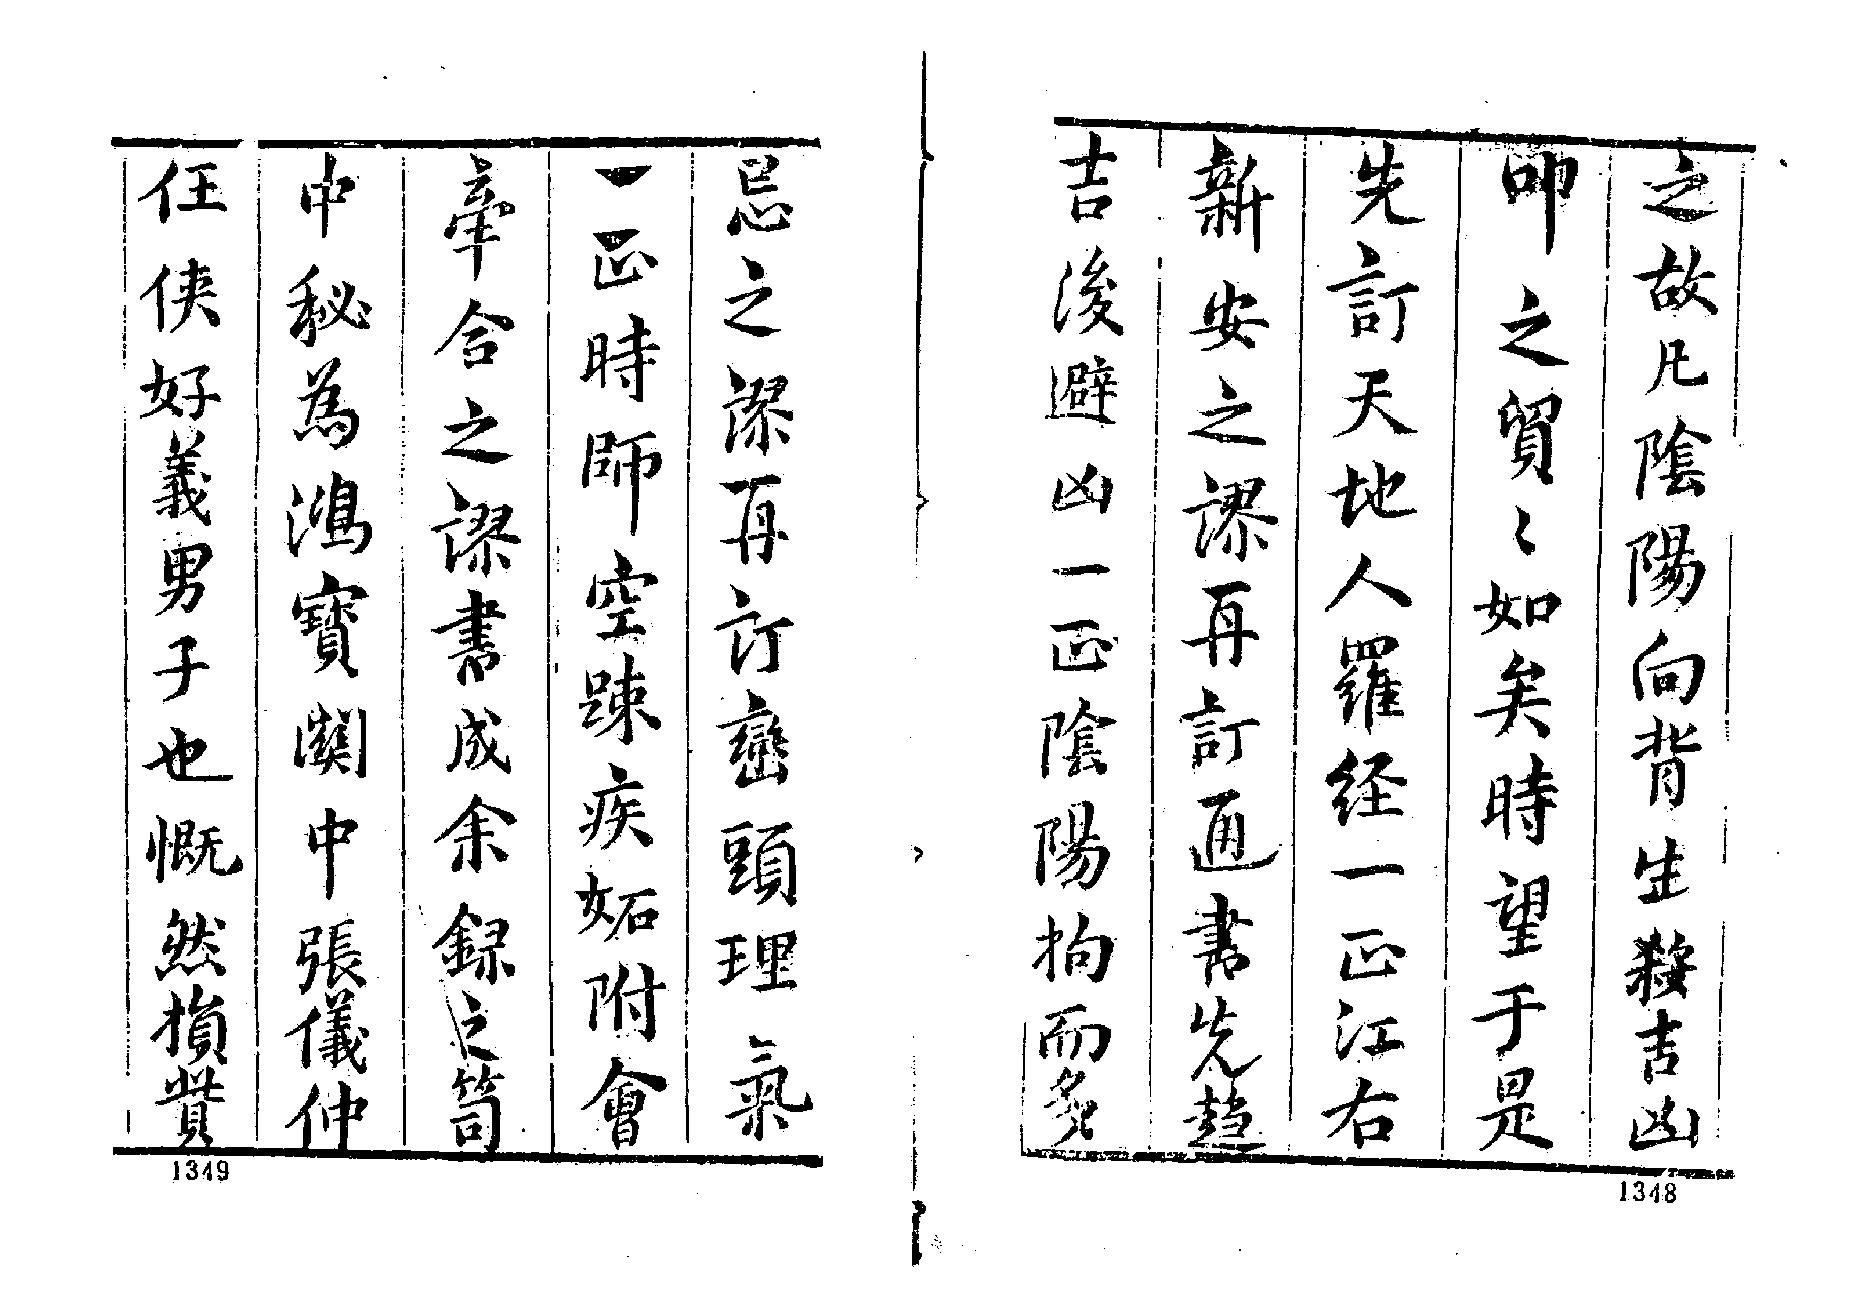 之故凡陰陽向背生殺吉凶
叩之貿〻如矣時望于是
先訂天地人羅経一正江右
新安之謬再訂通書先趋
吉後避凶一正陰陽拘而多
忌之謬再訂巒頭理氣
一正時師空踈疾妬附會
牽合之謬書成余録之笥
中秘為鴻寳閩中張儀仲
任俠好義男子也慨然損貲
1349
1348